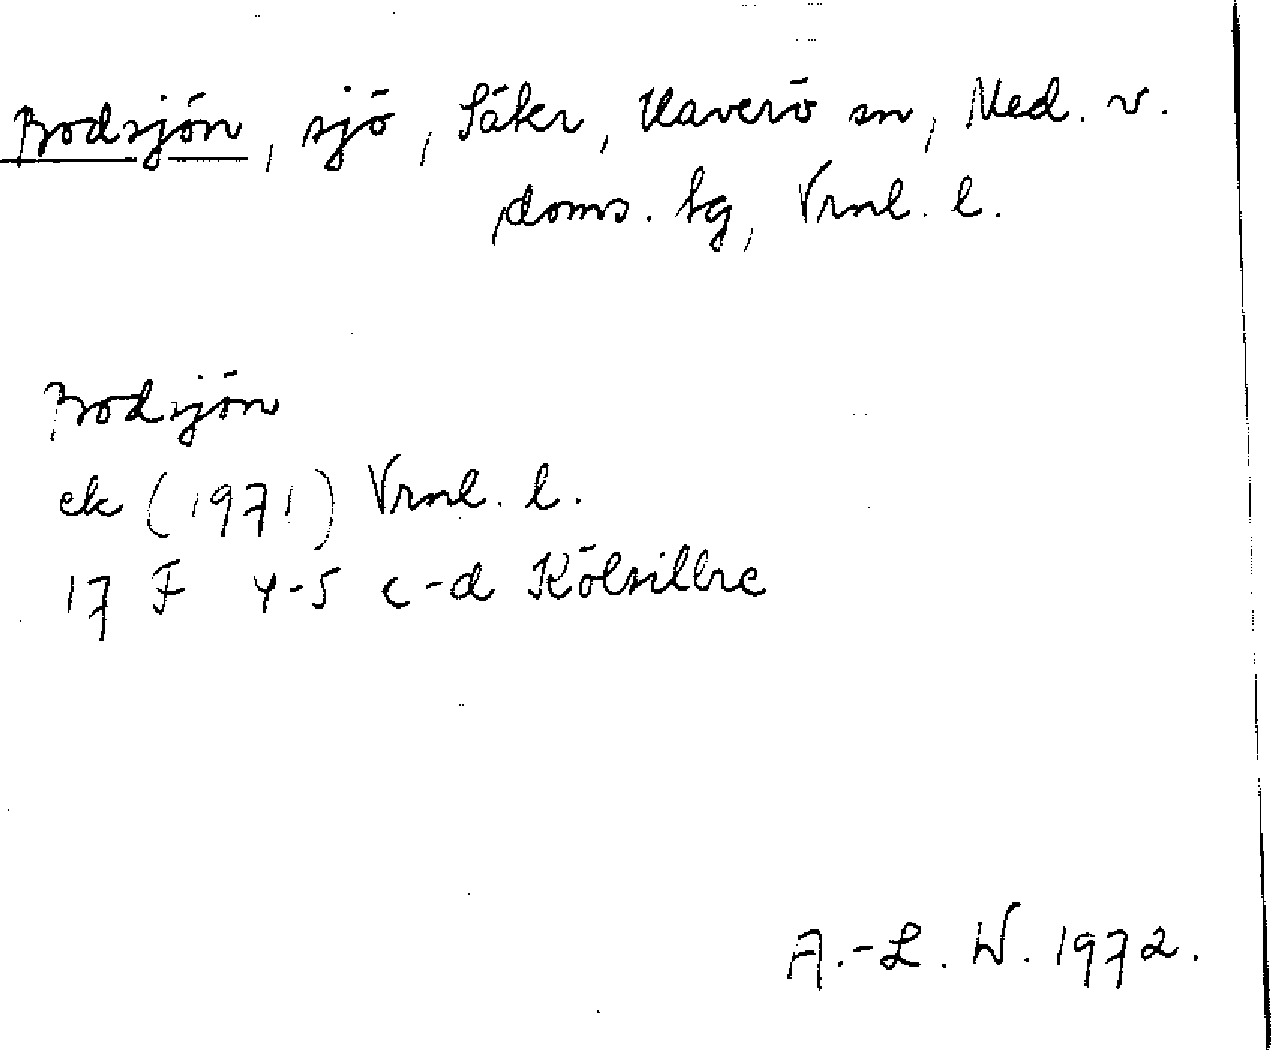 Bodsjön, sjö, Säkr, Haverö sn, Med. v.
doms. tg, Vrnl. l.
Bodsjön
ek (1971) Vrnl. l.
17 F 4-5 c-d Kölsillre
A.-L. W. 1972.